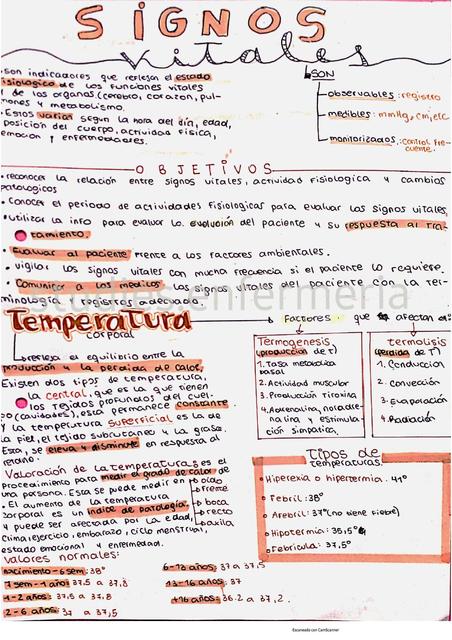 SIGNOS
vitales
• son indicadores que reflejan el estado
fisiologico de los funciones vitales
de los organos (cerebro, corazon, pul-
mones y metabolismo.
• Estos varian segun la hora del día, edad,
posicion del cuerpo, actividad fisica,
emocion y enfermedades.
SON
observables: registro
medibles: mmHg, cm, etc
monitorizados: control fre-
cuente.
OBJETIVOS
• reconocer la relación entre signos vitales, actividad fisiologica y cambios
patologicos
• Conocer el periodo de actividades fisiologicas para evaluar los signos vitales,
• utilizar la info para evaluar la evolución del paciente y su respuesta al tra-
tamiento.
• Evaluar al paciente frente a los factores ambientales.
• vigilar los signos vitales con mucha frecuencia si el paciente lo requiere.
• Comunicar a los medicos los signos vitales del paciente con la ter-
minología y registros adecuado.
studies enfermeria
Temperatura
corporal
Factores que afectan el:
refleja el equilibrio entre la
producción y la perdida de calor.
Existen dos tipos de temperatura,
la central, que es la que tienen
los tejidos profundos del cuer-
po (cavidades), esta permanece constante.
Y la temperatura superficial es la de
la piel, el tejido subcutaneo y la grasa.
Esta, se eleva y disminute en respuesta al
Termogenesis
(producción de t)
1. Tasa metabolica
basal
2. Actividad muscular
3. Producción tiroxina
4. Adrenalina, noradre-
nalina y estimula-
ción simpatica.
termolisis
(perdida de T)
1. Conducción
2. Convección
3. Evaporación
4. Radiación
Valoración de la temperatura: es el
procedimiento para medir el grado de calor de
una persona. Esta se puede medir en
oido
frente
boca
recto
axila
• El aumento de la temperatura
corporal es un indice de patología,
y puede ser afectada por la edad,
clima, ejercicio, embarazo, ciclo menstrual,
estado emocional y enfermedad.
Tipos de
temperaturas.
• Hiperexia o hipertermia: 41°
• Febril: 38°
• Afebril: 37° (no tiene fiebre)
• Hipotermia: 35,5°
• Febricula: 37,5°
Valores normales:
nacimiento - 6 sem: 38°
7 sem - 1 año: 37.5 a 37,8
1 - 2 años: 37,5 a 37.8
2 - 6 años: 37 a 37,5
6 - 13 años: 37 a 37,5
13 - 16 años: 37
+16 años: 36.2 a 37,2.
Escaneado con CamScanner